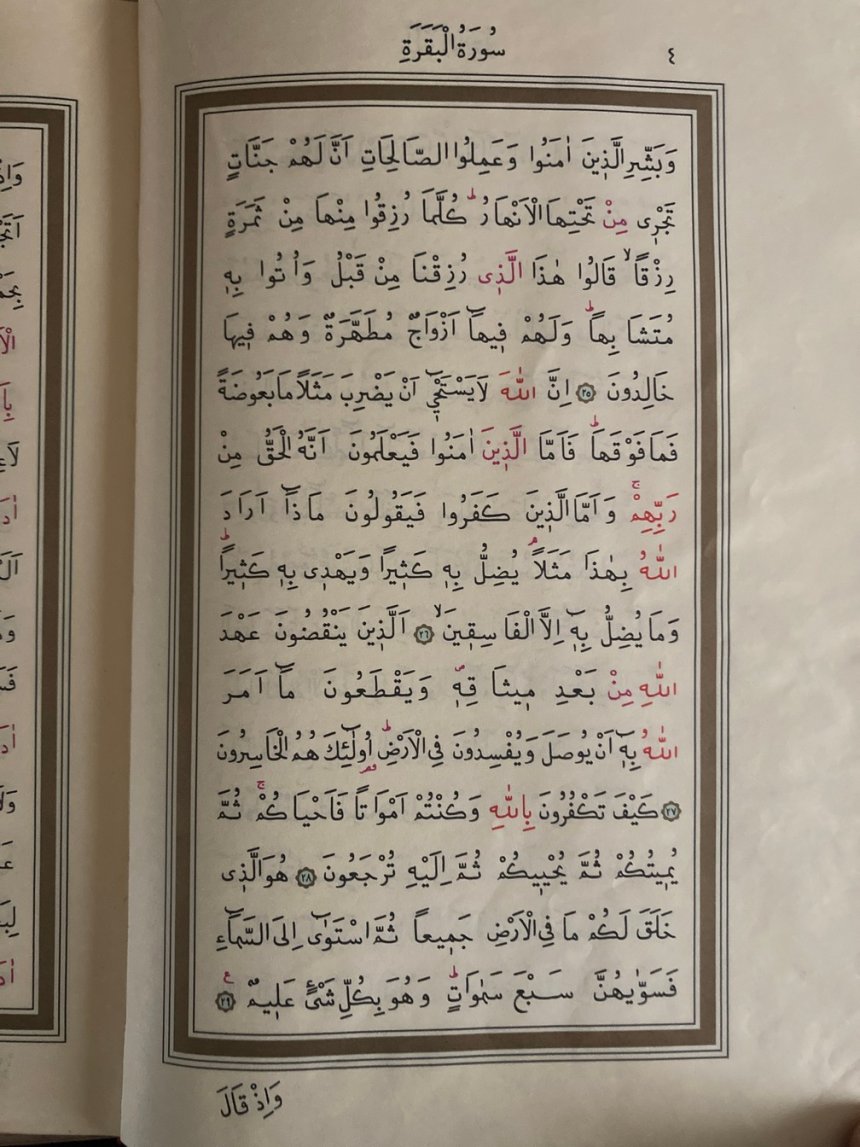 ٤
سُورَةُ الْبَقَرَةِ
وَبَشِّرِ الَّذ۪ينَ اٰمَنُوا وَعَمِلُوا الصَّالِحَاتِ اَنَّ لَهُمْ جَنَّاتٍ
تَجْر۪ى مِنْ تَحْتِهَا الْاَنْهَارُۜ كُلَّمَا رُزِقُوا مِنْهَا مِنْ ثَمَرَةٍ
رِزْقًاۙ قَالُوا هٰذَا الَّذ۪ى رُزِقْنَا مِنْ قَبْلُ وَاُتُوا بِه۪
مُتَشَابِهًاۜ وَلَهُمْ ف۪يهَٓا اَزْوَاجٌ مُطَهَّرَةٌ وَهُمْ ف۪يهَا
خَالِدُونَ ﴿٢٥﴾ اِنَّ اللّٰهَ لَا يَسْتَحْي۪ٓ اَنْ يَضْرِبَ مَثَلًا مَا بَعُوضَةً
فَمَا فَوْقَهَاۜ فَاَمَّا الَّذ۪ينَ اٰمَنُوا فَيَعْلَمُونَ اَنَّهُ الْحَقُّ مِنْ
رَبِّهِمْۚ وَاَمَّا الَّذ۪ينَ كَفَرُوا فَيَقُولُونَ مَاذَٓا اَرَادَ
اللّٰهُ بِهٰذَا مَثَلًاۢ يُضِلُّ بِه۪ كَث۪يرًا وَيَهْد۪ى بِه۪ كَث۪يرًاۜ
وَمَا يُضِلُّ بِه۪ٓ اِلَّا الْفَاسِق۪ينَۙ ﴿٢٦﴾ اَلَّذ۪ينَ يَنْقُضُونَ عَهْدَ
اللّٰهِ مِنْ بَعْدِ م۪يثَاقِه۪ۖ وَيَقْطَعُونَ مَٓا اَمَرَ
اللّٰهُ بِه۪ٓ اَنْ يُوصَلَ وَيُفْسِدُونَ فِى الْاَرْضِۜ اُولٰٓئِكَ هُمُ الْخَاسِرُونَ
﴿٢٧﴾ كَيْفَ تَكْفُرُونَ بِاللّٰهِ وَكُنْتُمْ اَمْوَاتًا فَاَحْيَاكُمْۚ ثُمَّ
يُم۪يتُكُمْ ثُمَّ يُحْي۪يكُمْ ثُمَّ اِلَيْهِ تُرْجَعُونَ ﴿٢٨﴾ هُوَ الَّذ۪ى
خَلَقَ لَكُمْ مَا فِى الْاَرْضِ جَم۪يعًا ثُمَّ اسْتَوٰٓى اِلَى السَّمَٓاءِ
فَسَوّٰيهُنَّ سَبْعَ سَمٰوَاتٍۜ وَهُوَ بِكُلِّ شَىْءٍ عَل۪يمٌ ﴿٢٩﴾ ع
وَاِذْ قَالَ